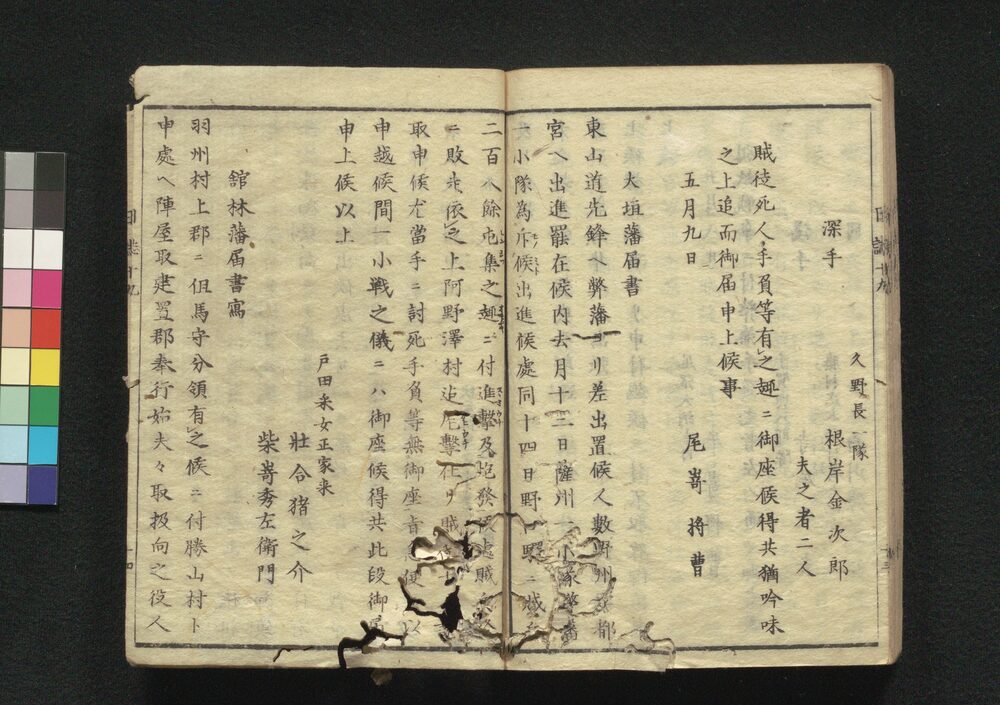 久野長一隊
深手 根岸金次郎
夫之者二人
賊徒死人手負等有之趣ニ御座候得共猶吟味
之上追而御届申上候事
五月九日 尾嵜将曹
大垣藩届書
東山道先鋒ヘ弊藩ヨリ差出置候人数野州宇都
宮ヘ出進罷在候内去月十三日薩州一小隊弊藩
一小隊為斥候出進候處同十四日野
二百人餘屯集之趣ニ付進擊及炮發候處賊
ニ敗走依之上阿野澤村迄尾擊仕リ賊
取申候尤當手ニ討死手負等無御座
申越候間一小戰之儀ニハ御座候得共此段御届
申上候以上
戸田采女正家来
壮合猪之介
柴嵜秀左衛門
舘林藩届書寫
羽州村上郡ニ但馬守分領有之候ニ付勝山村ト
申處ヘ陣屋取建置郡奉行始夫々取扱向之役人